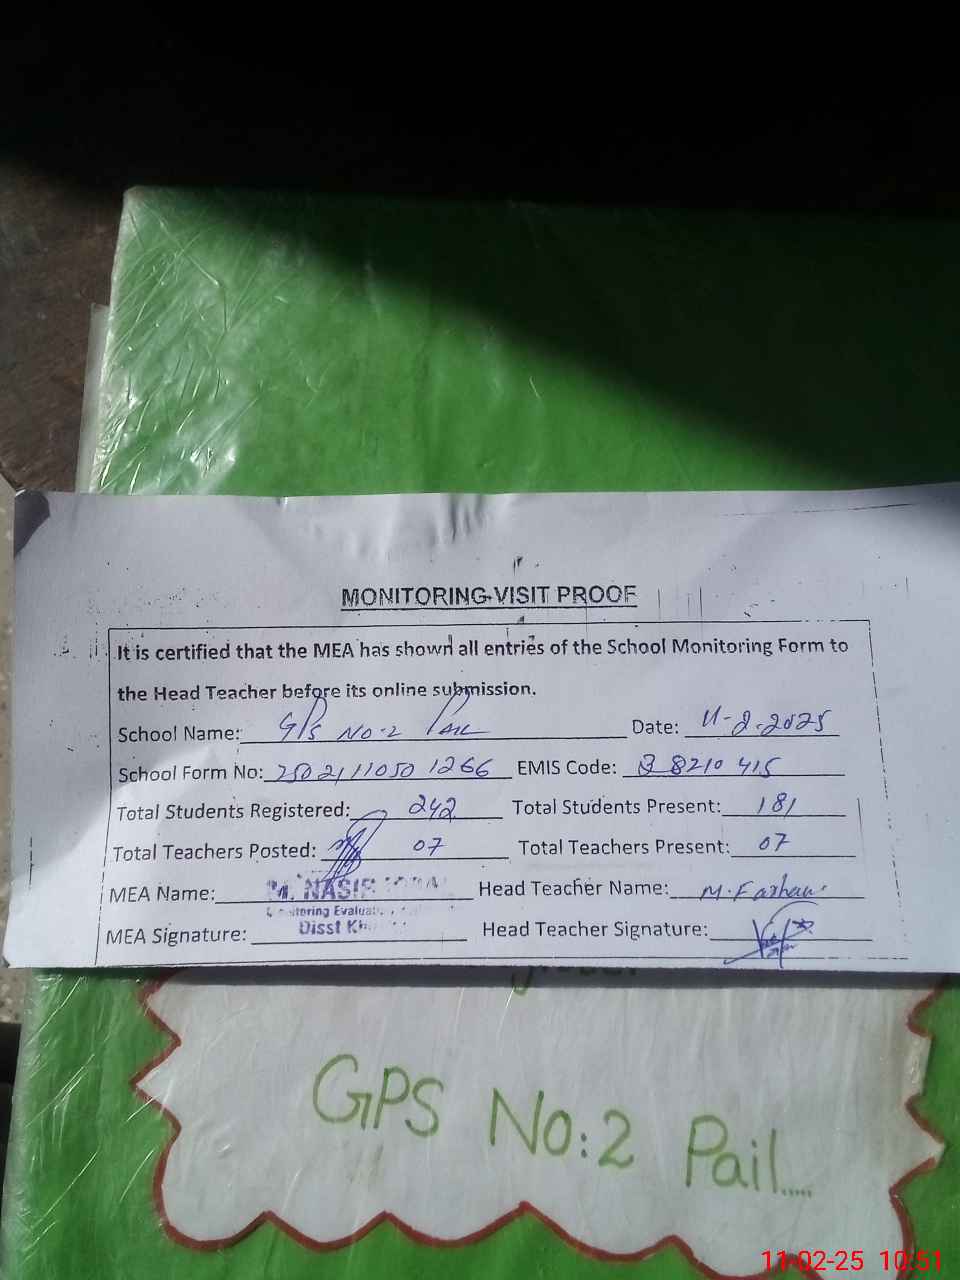 MONITORING VISIT PROOF
It is certified that the MEA has shown all entries of the School Monitoring Form to
the Head Teacher before its online submission.
School Name: GPS NO:2 Pail Date: 11-2-2025
School Form No: 2502111050 1266 EMIS Code: 38210415
Total Students Registered: 242 Total Students Present: 181
Total Teachers Posted: 07 Total Teachers Present: 07
MEA Name: M. NASIR Head Teacher Name: M. Farhan
Monitoring Evaluat
MEA Signature: Disst Kh Head Teacher Signature:
GPS No:2 Pail.....
11-02-25 10:51